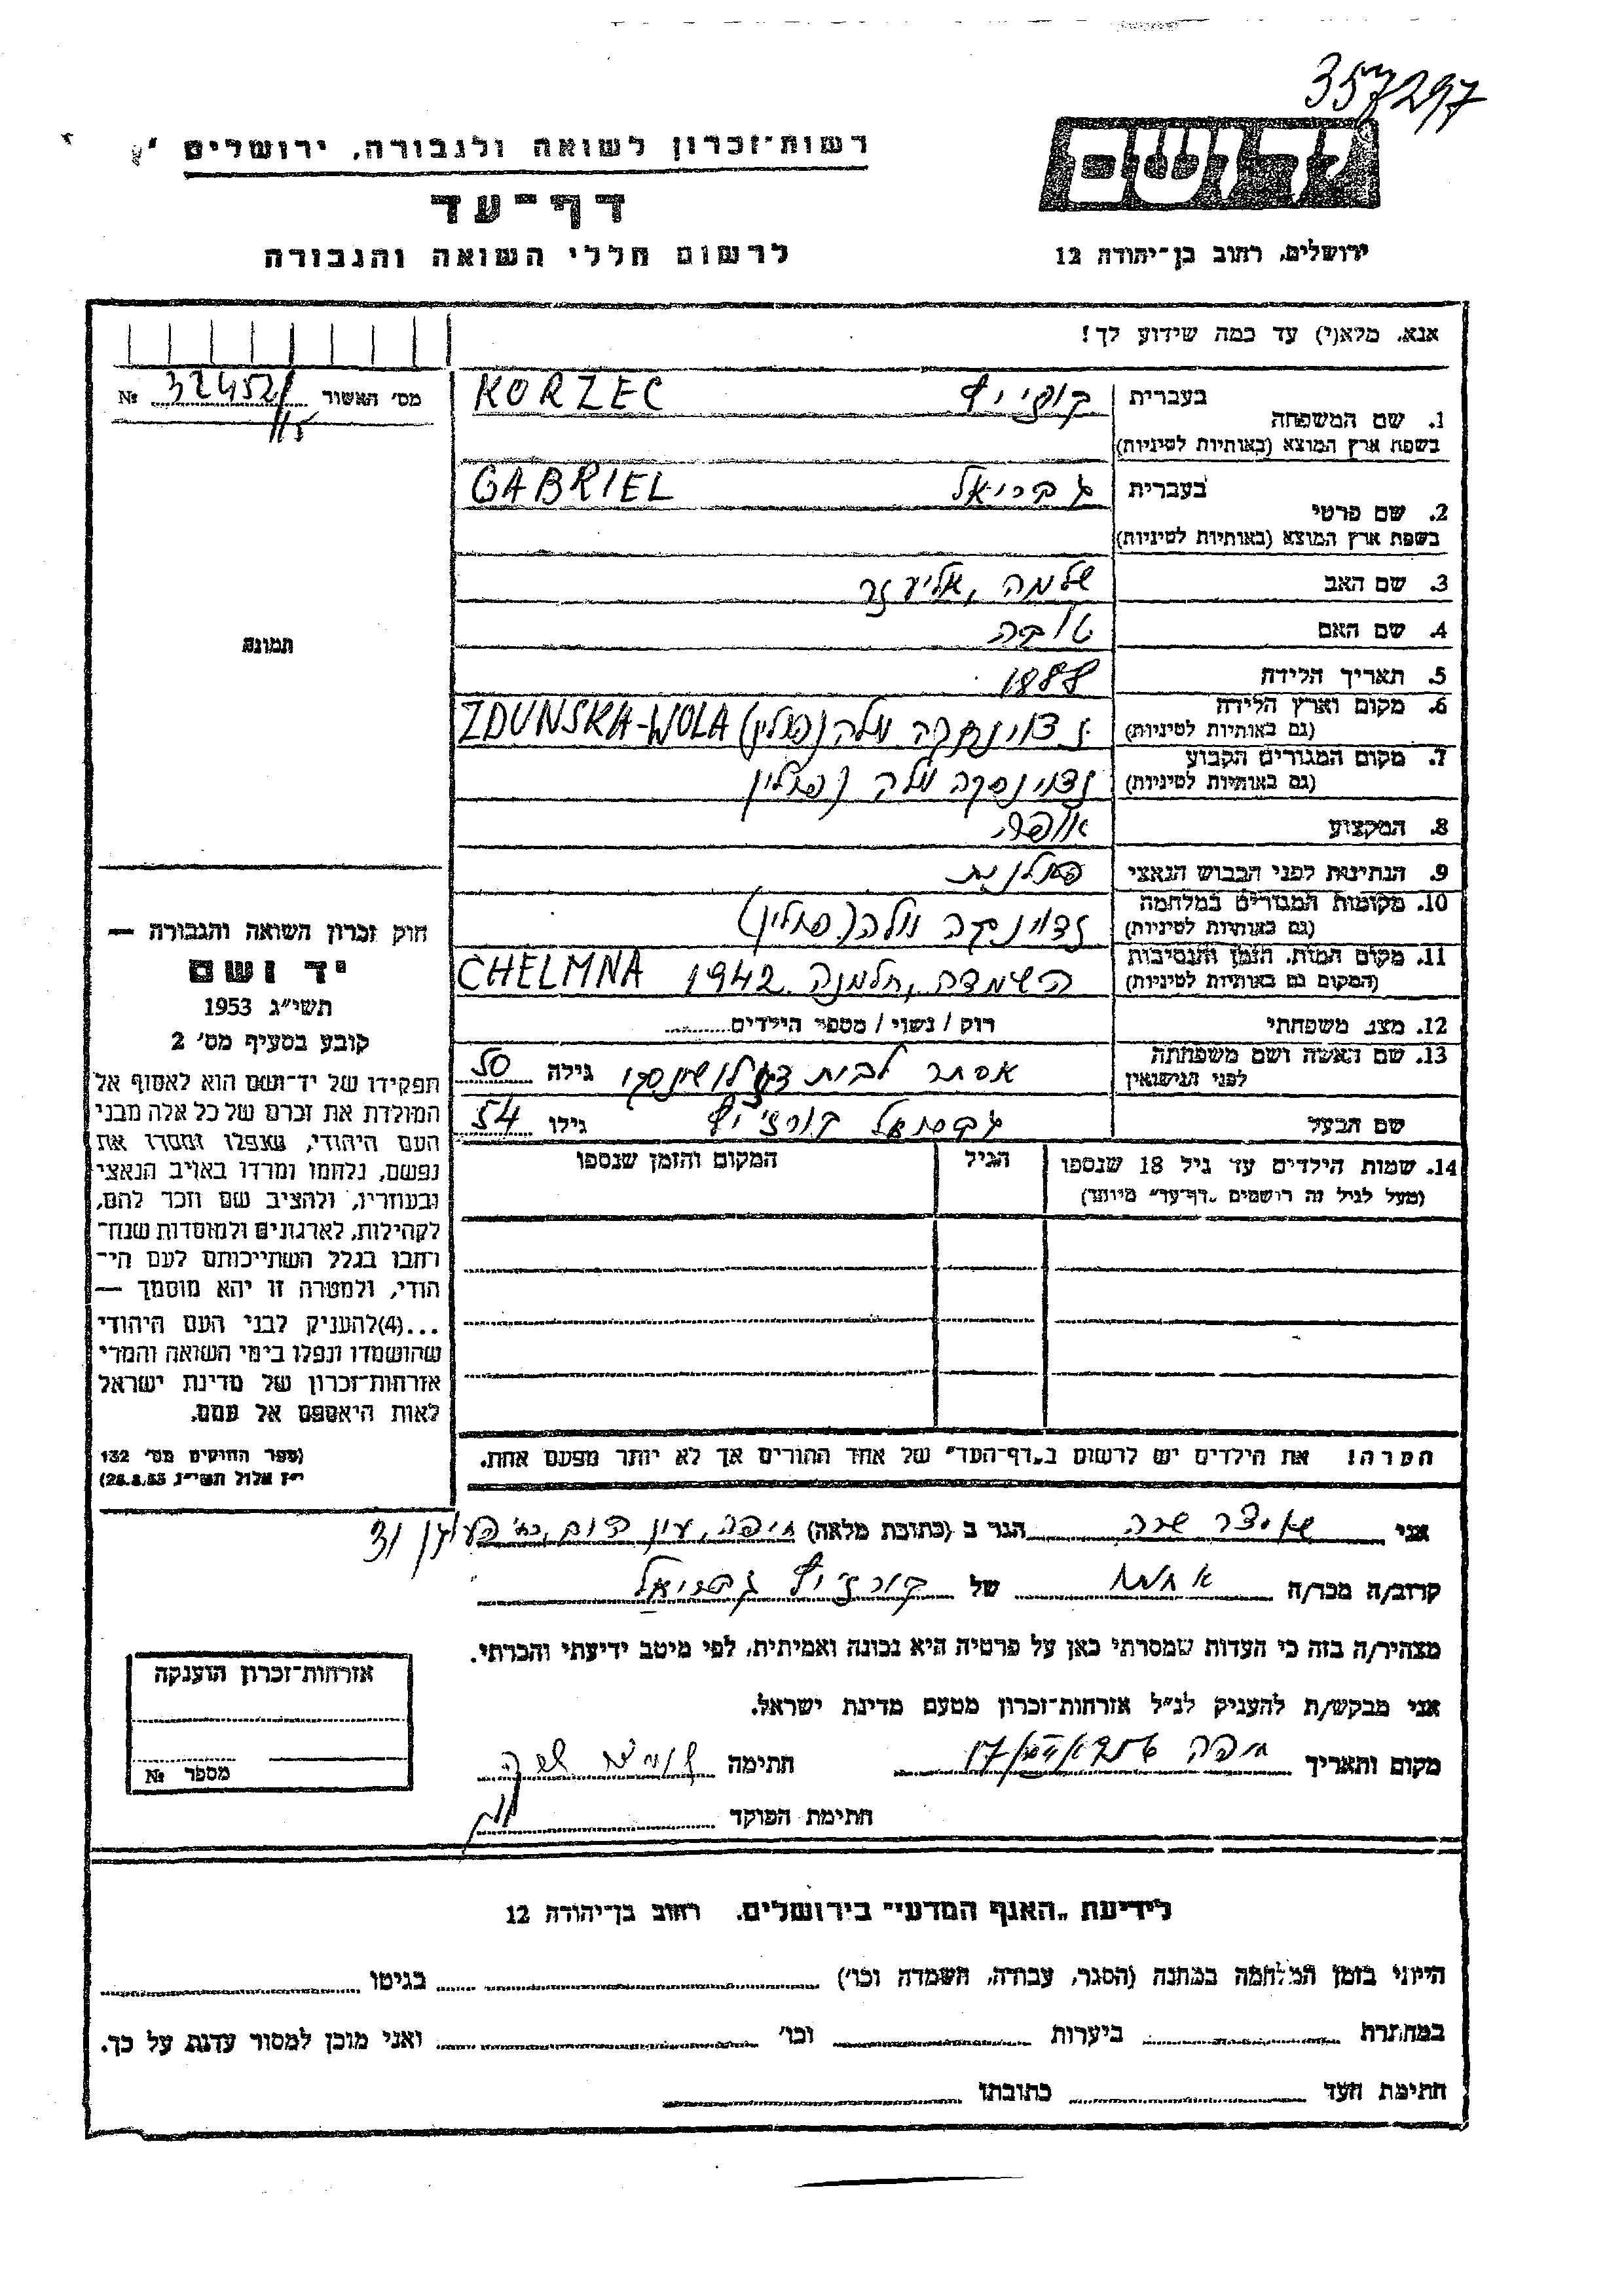 357297
רשות־זכרון לשואה ולגבורה, ירושלים
יד ושם
דף־עד
לרשום חללי השואה והגבורה
ירושלים, רחוב בן־יהודה 12
אנא, מלא(י) עד כמה שידוע לך!
מס' האשור 32452/ №
בעברית
1. שם המשפחה KORZEC
בשפת ארץ המוצא (באותיות לטיניות)
בעברית גבריאל GABRIEL
2. שם פרטי
בשפת ארץ המוצא (באותיות לטיניות)
3. שם האב שלמה, אליעזר
4. שם האם טובה
5. תאריך הלידה 1888
6. מקום וארץ הלידה זדוינסקה וולה (פולין) ZDUNSKA-WOLA
(גם באותיות לטיניות)
7. מקום המגורים הקבוע זדוינסקה וולה (פולין
(גם באותיות לטיניות)
8. המקצוע אופה
9. הנתינות לפני הכבוש הנאצי פולנית
10. מקומות המגורים במלחמה זדוינסקה וולה (פולין)
(גם באותיות לטיניות)
11. מקום המות, הזמן והנסיבות השמדה, חלמנה 1942 CHELMNA
(המקום גם באותיות לטיניות)
12. מצב משפחתי רוק / נשוי / מספר הילדים
13. שם האשה ושם משפחתה אסתר לבית גילה 50
לפני הנישואין
שם הבעל גבריאל קורז'יץ גילו 54
14. שמות הילדים עד גיל 18 שנספו הגיל המקום והזמן שנספו
(מעל לגיל זה רושמים „דף־עד" מיוחד)
הערה! את הילדים יש לרשום ב„דף־העד" של אחד ההורים אך לא יותר מפעם אחת.
תמונה
חוק זכרון השואה והגבורה —
יד ושם
תשי"ג 1953
קובע בסעיף מס' 2
תפקידו של יד־ושם הוא לאסוף אל
המולדת את זכרם של כל אלה מבני
העם היהודי, שנפלו ומסרו את
נפשם, נלחמו ומרדו באויב הנאצי
ובעוזריו, ולהציב שם וזכר להם,
לקהילות, לארגונים ולמוסדות שנח־
רבו בגלל השתייכותם לעם הי־
הודי, ולמטרה זו יהא מוסמך —
...(4)להעניק לבני העם היהודי
שהושמדו ונפלו בימי השואה והמרי
אזרחות־זכרון של מדינת ישראל
לאות היאספם אל עמם.
(ספר החוקים מס' 132
י"ז אלול תשי"ג 28.8.53)
אני שרה הגר ב (כתובת מלאה) חיפה, עין הים, 31
קרוב/ה מכר/ה אחות של קורז'יץ גבריאל
מצהיר/ה בזה כי העדות שמסרתי כאן על פרטיה היא נכונה ואמיתית, לפי מיטב ידיעתי והכרתי.
אני מבקש/ת להעניק לנ"ל אזרחות־זכרון מטעם מדינת ישראל.
מקום ותאריך חיפה חתימה שרה
חתימת הפוקד
אזרחות־זכרון הוענקה
מספר №
לידיעת „האגף המדעי" בירושלים, רחוב בן־יהודה 12
הייתי בזמן המלחמה במחנה (הסגר, עבודה, השמדה וכו') בגיטו
במחתרת ביערות וכו' ואני מוכן למסור עדות על כך.
חתימת העד כתובתו